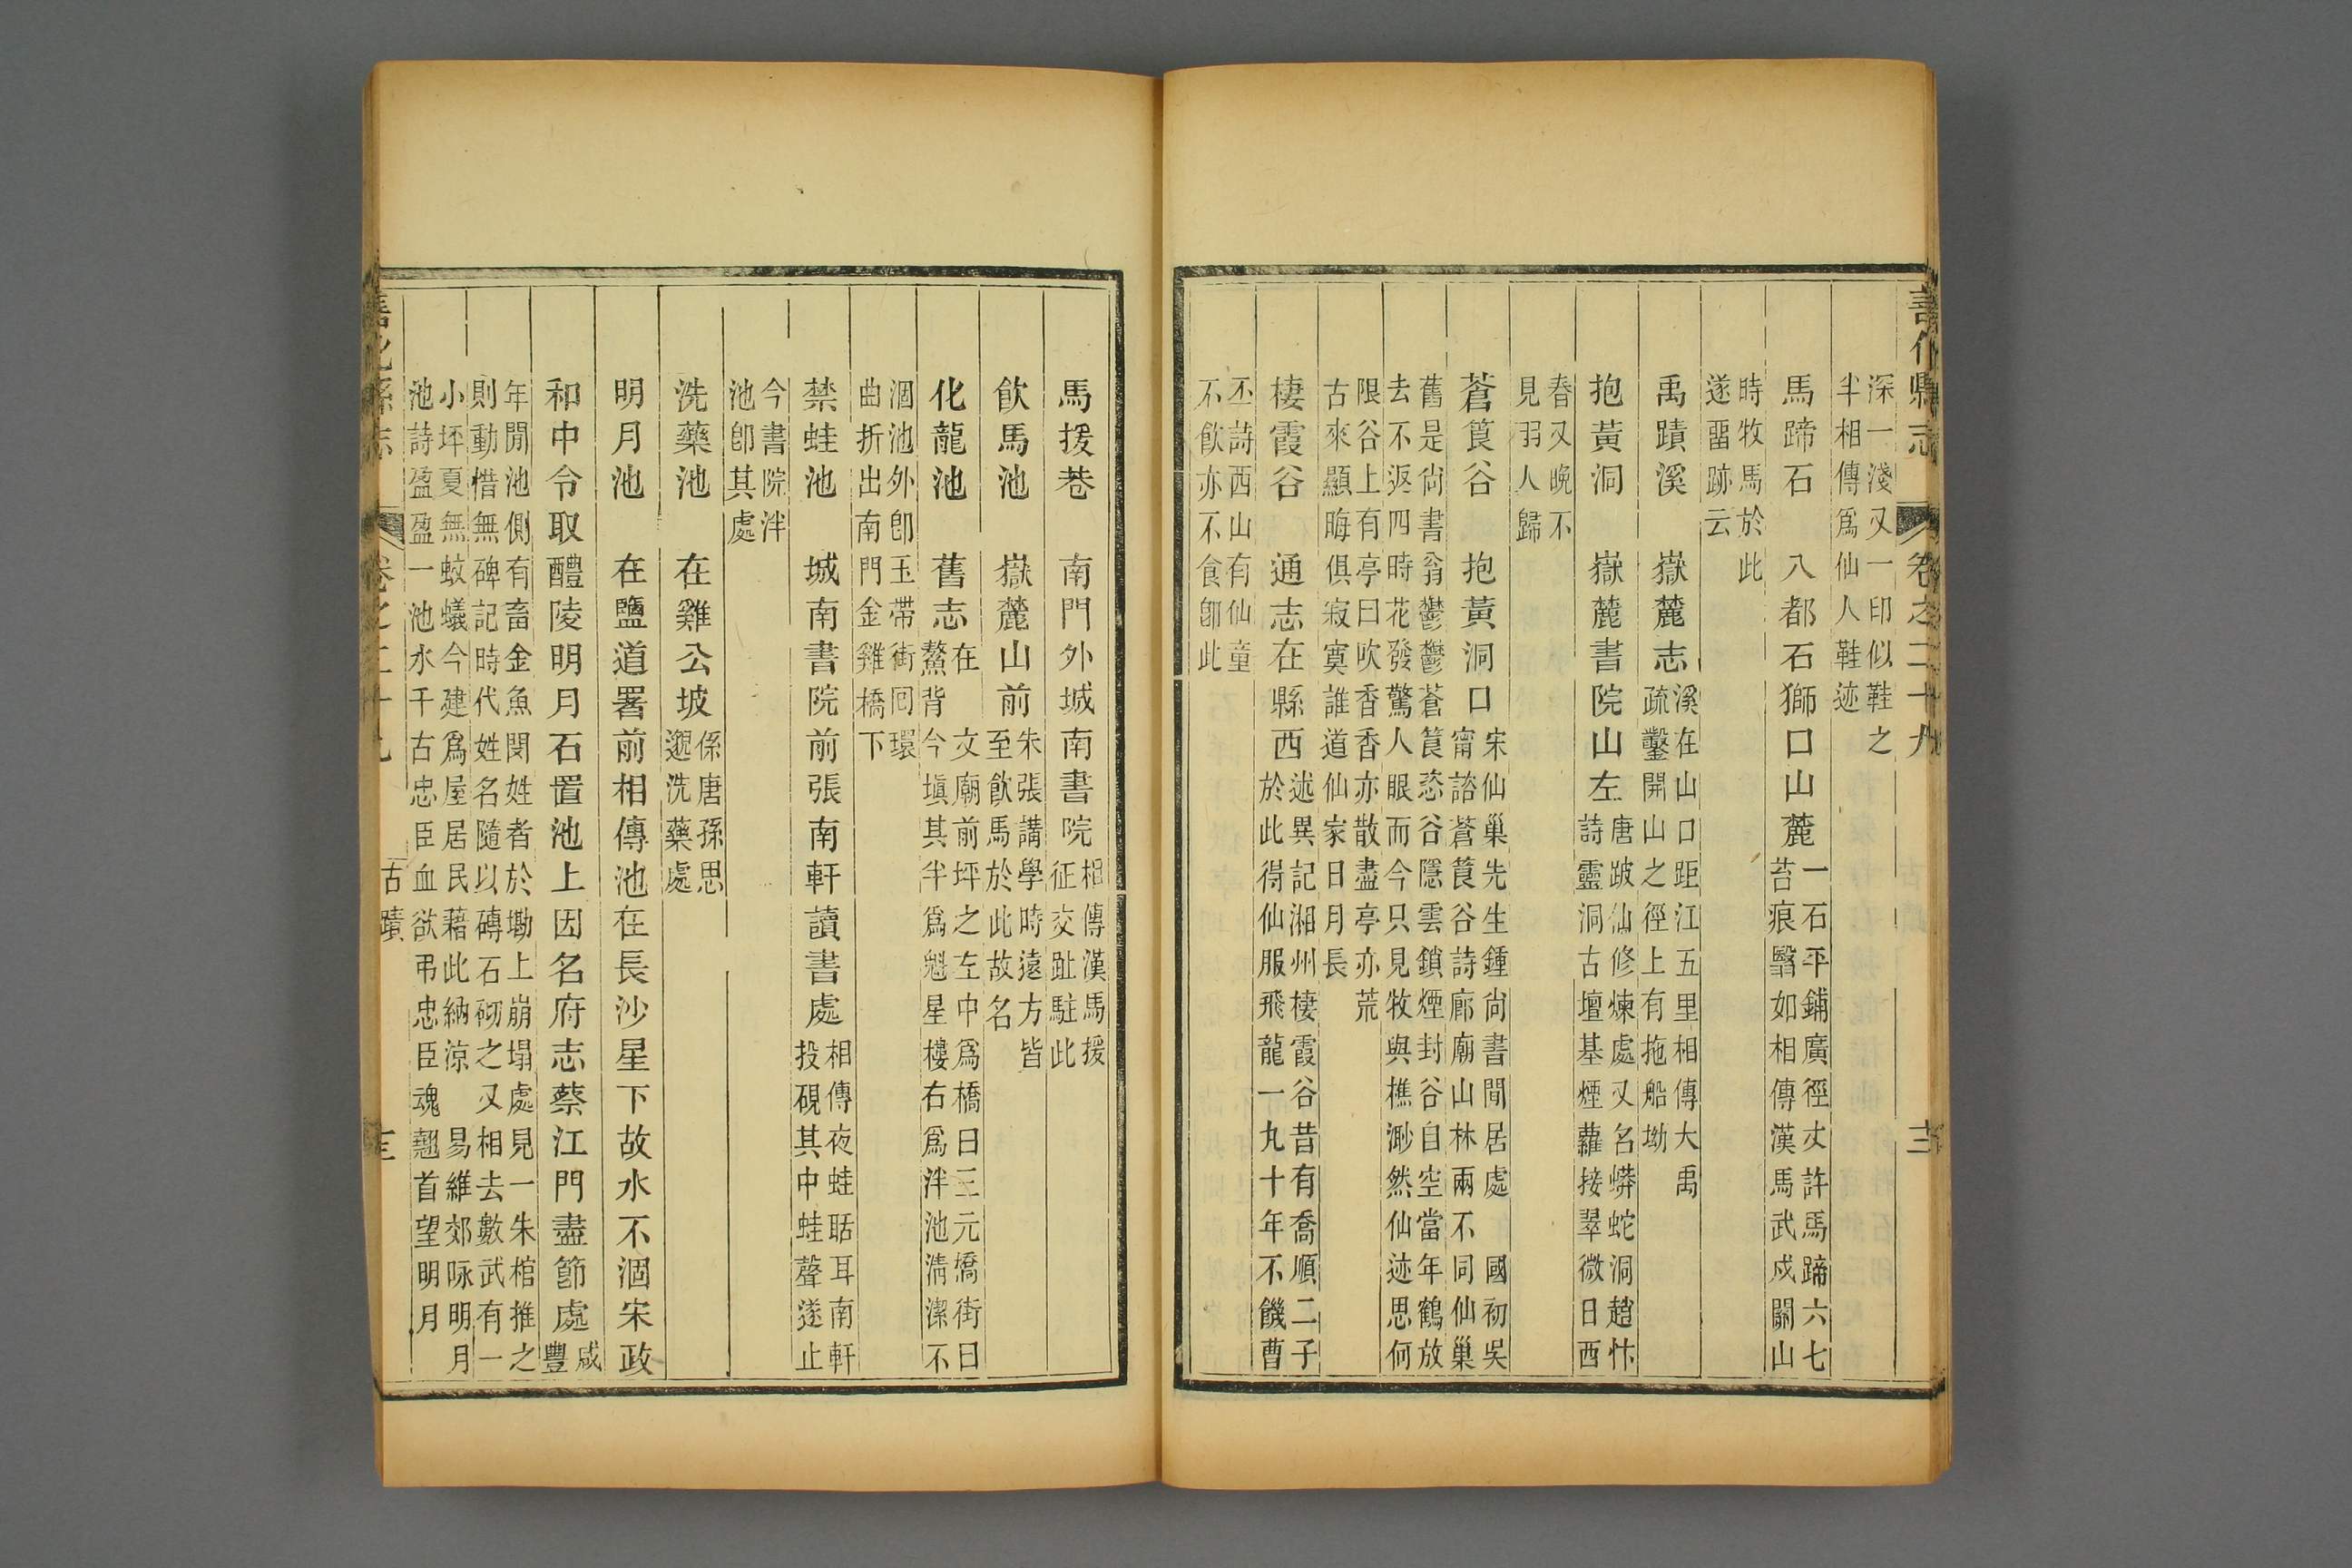 善化縣志　卷之二十九　三
深一淺又一印似鞋之
半相傳爲仙人鞋迹
馬蹄石　八都石獅口山麓一石平鋪廣徑丈許馬蹄六七
苔痕翳如相傳漢馬武戍關山
時牧馬於此
遂畱跡云
禹蹟溪　嶽麓志溪在山口距江五里相傳大禹
疏鑿開山之徑上有拖船坳
抱黃洞　嶽麓書院山左唐跛仙修煉處又名蟒蛇洞趙忭
詩靈洞古壇基煙蘿接翠微日西
春又晚不
見羽人歸
蒼筤谷　抱黃洞口宋仙巢先生鍾尙書閒居處　國初吳
甯諮蒼筤谷詩廊廟山林兩不同仙巢
舊是尙書翁鬱鬱蒼筤恣谷隱雲鎖煙封谷自空當年鶴放
去不返四時花發驚人眼而今只見牧與樵渺然仙迹思何
限谷上有亭曰吹香香亦散盡亭亦荒
古來顯晦俱寂寞誰道仙家日月長
棲霞谷　通志在縣西述異記湘州棲霞谷昔有喬順二子
於此得仙服飛龍一丸十年不饑曹
丕詩西山有仙童
不飮亦不食卽此
馬援巷　南門外城南書院相傳漢馬援
征交趾駐此
飮馬池　嶽麓山前朱張講學時遠方皆
至飮馬於此故名
化龍池　舊志在鰲背　文廟前坪之左中爲橋曰三元橋街曰
今塡其半爲魁星樓右爲泮池淸潔不
涸池外卽玉帶街囘環
曲折出南門金雞橋下
禁蛙池　城南書院前張南軒讀書處相傳夜蛙聒耳南軒
投硯其中蛙聲遂止
今書院泮
池卽其處
洗藥池　在雞公坡係唐孫思
邈洗藥處
明月池　在鹽道署前相傳池在長沙星下故水不涸宋政
和中令取醴陵明月石置池上因名府志蔡江門盡節處咸
豐
年閒池側有畜金魚閔姓者於坳上崩塌處見一朱棺推之
則動惜無碑記時代姓名隨以磚石砌之又相去數武有一
小坪夏無蚊蟻今建爲屋居民藉此納凉　易維郊咏明月
池詩盈盈一池水千古忠臣血欲弔忠臣魂翹首望明月
善化縣志　卷之二十九　古蹟